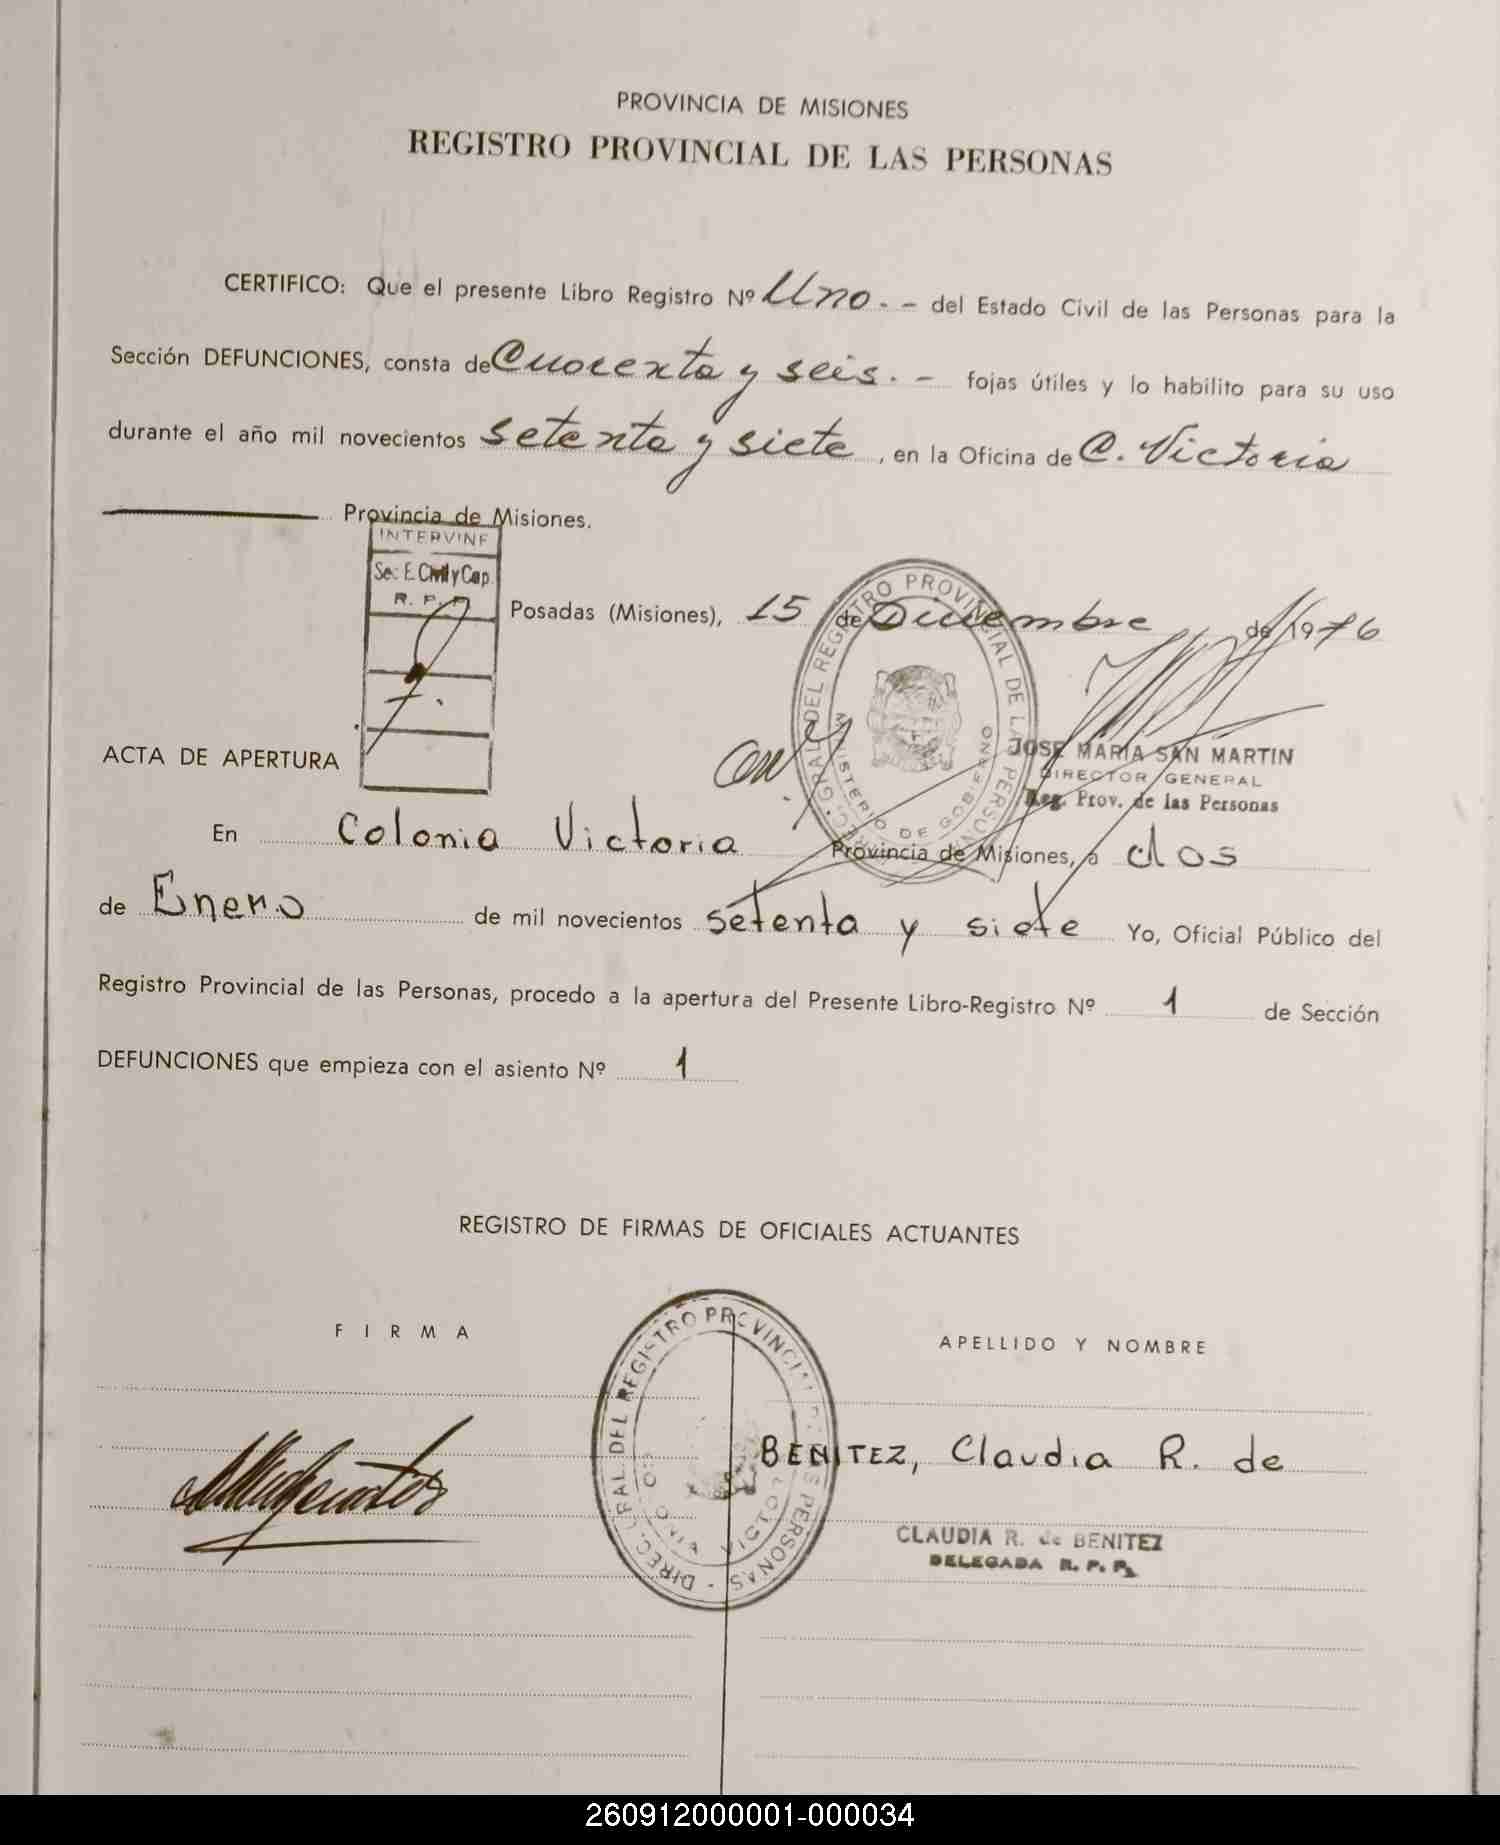 PROVINCIA DE MISIONES
REGISTRO PROVINCIAL DE LAS PERSONAS
CERTIFICO: Que el presente Libro Registro Nº Uno. - del Estado Civil de las Personas para la
Sección DEFUNCIONES, consta de Cuarenta y seis. - fojas útiles y lo habilito para su uso
durante el año mil novecientos setenta y siete, en la Oficina de C. Victoria
Provincia de Misiones.
INTERVINE
Sec. E. Civil y Cap.
R. P. P.
Posadas (Misiones), 15 de Diciembre de 1976
DIREC. GRAL. DEL REGISTRO PROVINCIAL DE LAS PERSONAS
MINISTERIO DE GOBIERNO
JOSE MARIA SAN MARTIN
DIRECTOR GENERAL
Reg. Prov. de las Personas
ACTA DE APERTURA
En Colonia Victoria Provincia de Misiones, a dos
de Enero de mil novecientos setenta y siete Yo, Oficial Público del
Registro Provincial de las Personas, procedo a la apertura del Presente Libro-Registro Nº 1 de Sección
DEFUNCIONES que empieza con el asiento Nº 1
REGISTRO DE FIRMAS DE OFICIALES ACTUANTES
FIRMA
APELLIDO Y NOMBRE
DIREC. GRAL. DEL REGISTRO PROVINCIAL DE LAS PERSONAS
BENITEZ, Claudia R. de
CLAUDIA R. de BENITEZ
DELEGADA R. P. P.
260912000001-000034